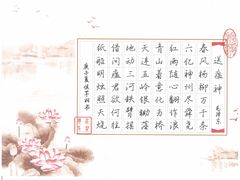 送瘟神
毛泽东
春风杨柳万千条
六亿神州尽舜尧
红雨随心翻作浪
青山着意化为桥
天连五岭银锄落
地动三河铁臂摇
借问瘟君欲何往
纸船明烛照天烧
庚子夏